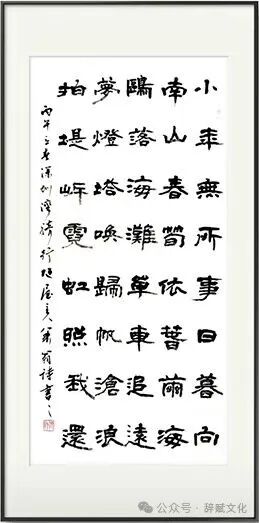 小年無所事日暮向
南山春筍依萅繭海
鷗落海灘單車追遠
夢燈塔喚歸帆滄浪
拍堤岸霓虹照我還
丙午 春深圳灣騎行 翁詩書之
公众号 · 辞赋文化